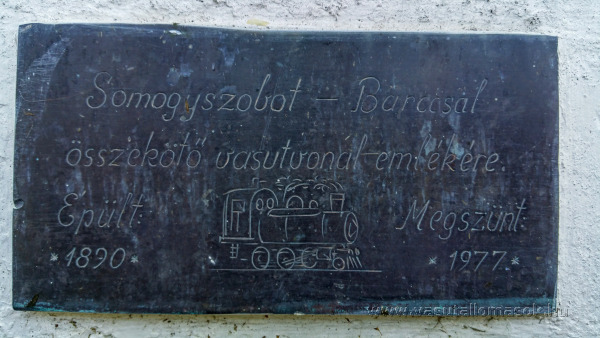 Somogyszobot - Barcsal
összekötő vasútvonal emlékére.
Épült: Megszünt:
*1890* *1977*
www.vasutallomasok.hu